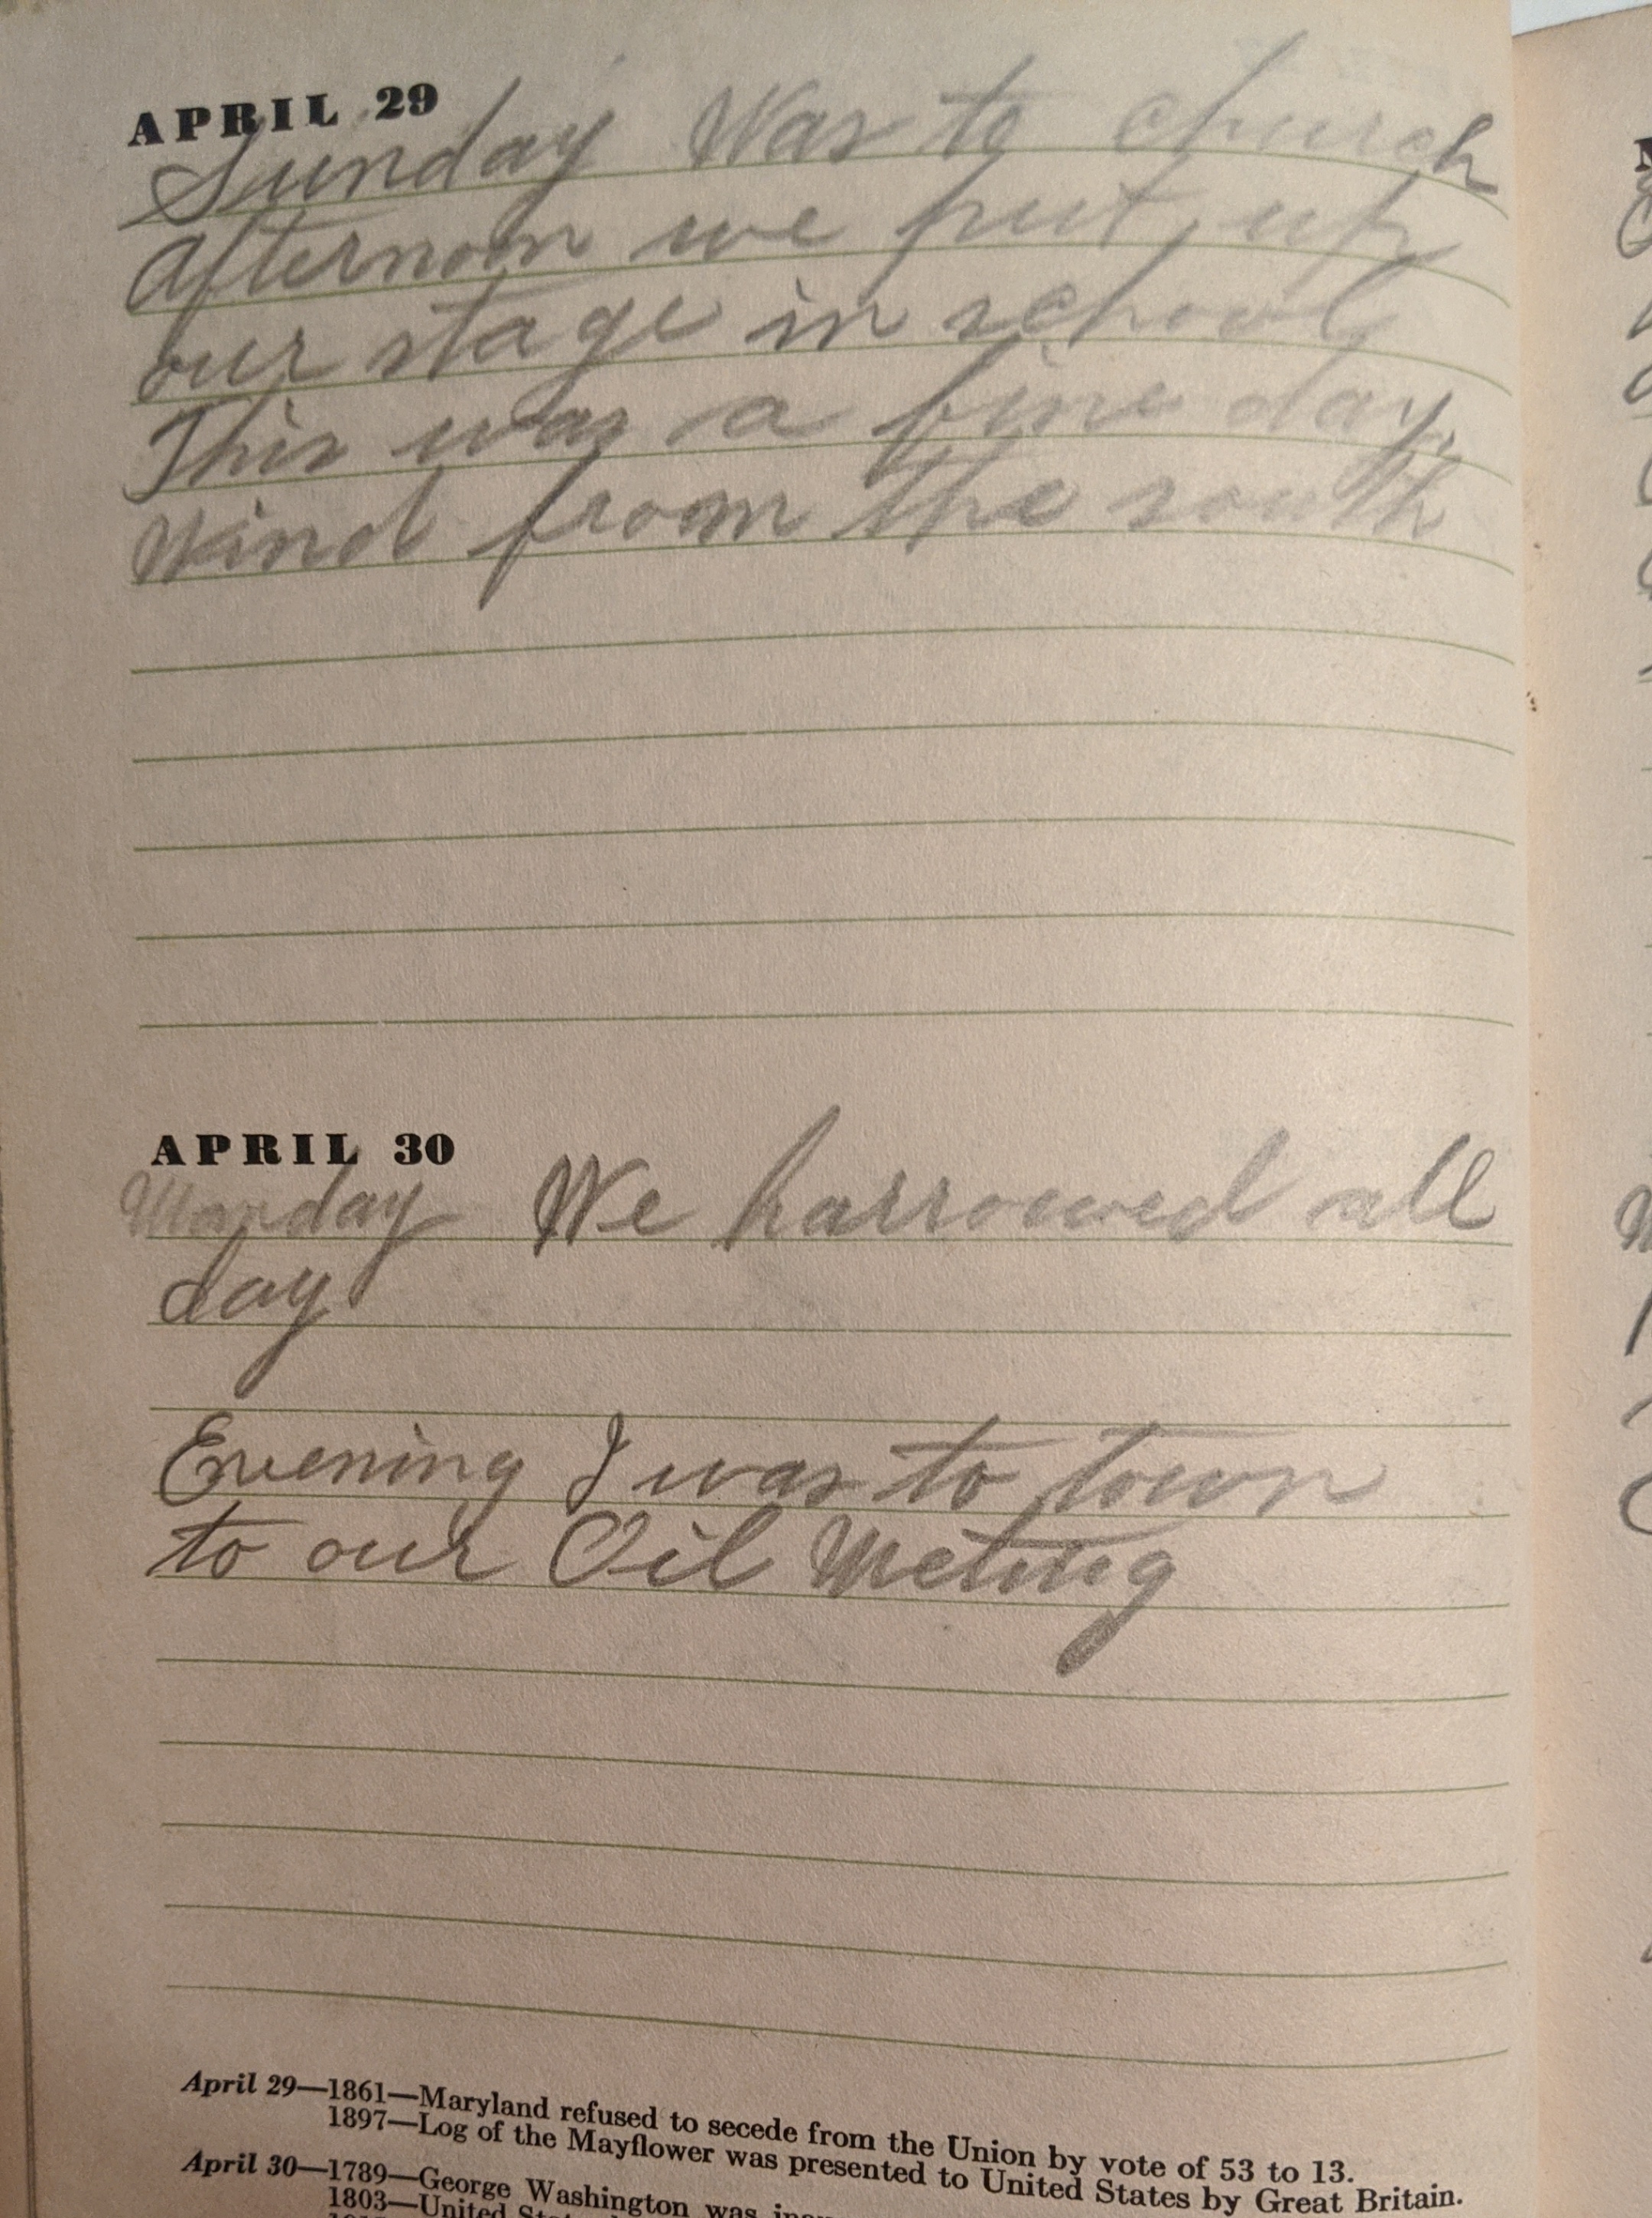 APRIL 29
Sunday Was to church
afternoon we put up
our stage in school
This was a fine day.
Wind from the south
APRIL 30
Monday We harrowed all
day
Evening I was to town
to our Oil Meting
April 29—1861—Maryland refused to secede from the Union by vote of 53 to 13.
1897—Log of the Mayflower was presented to United States by Great Britain.
April 30—1789—George Washington was
1803—United